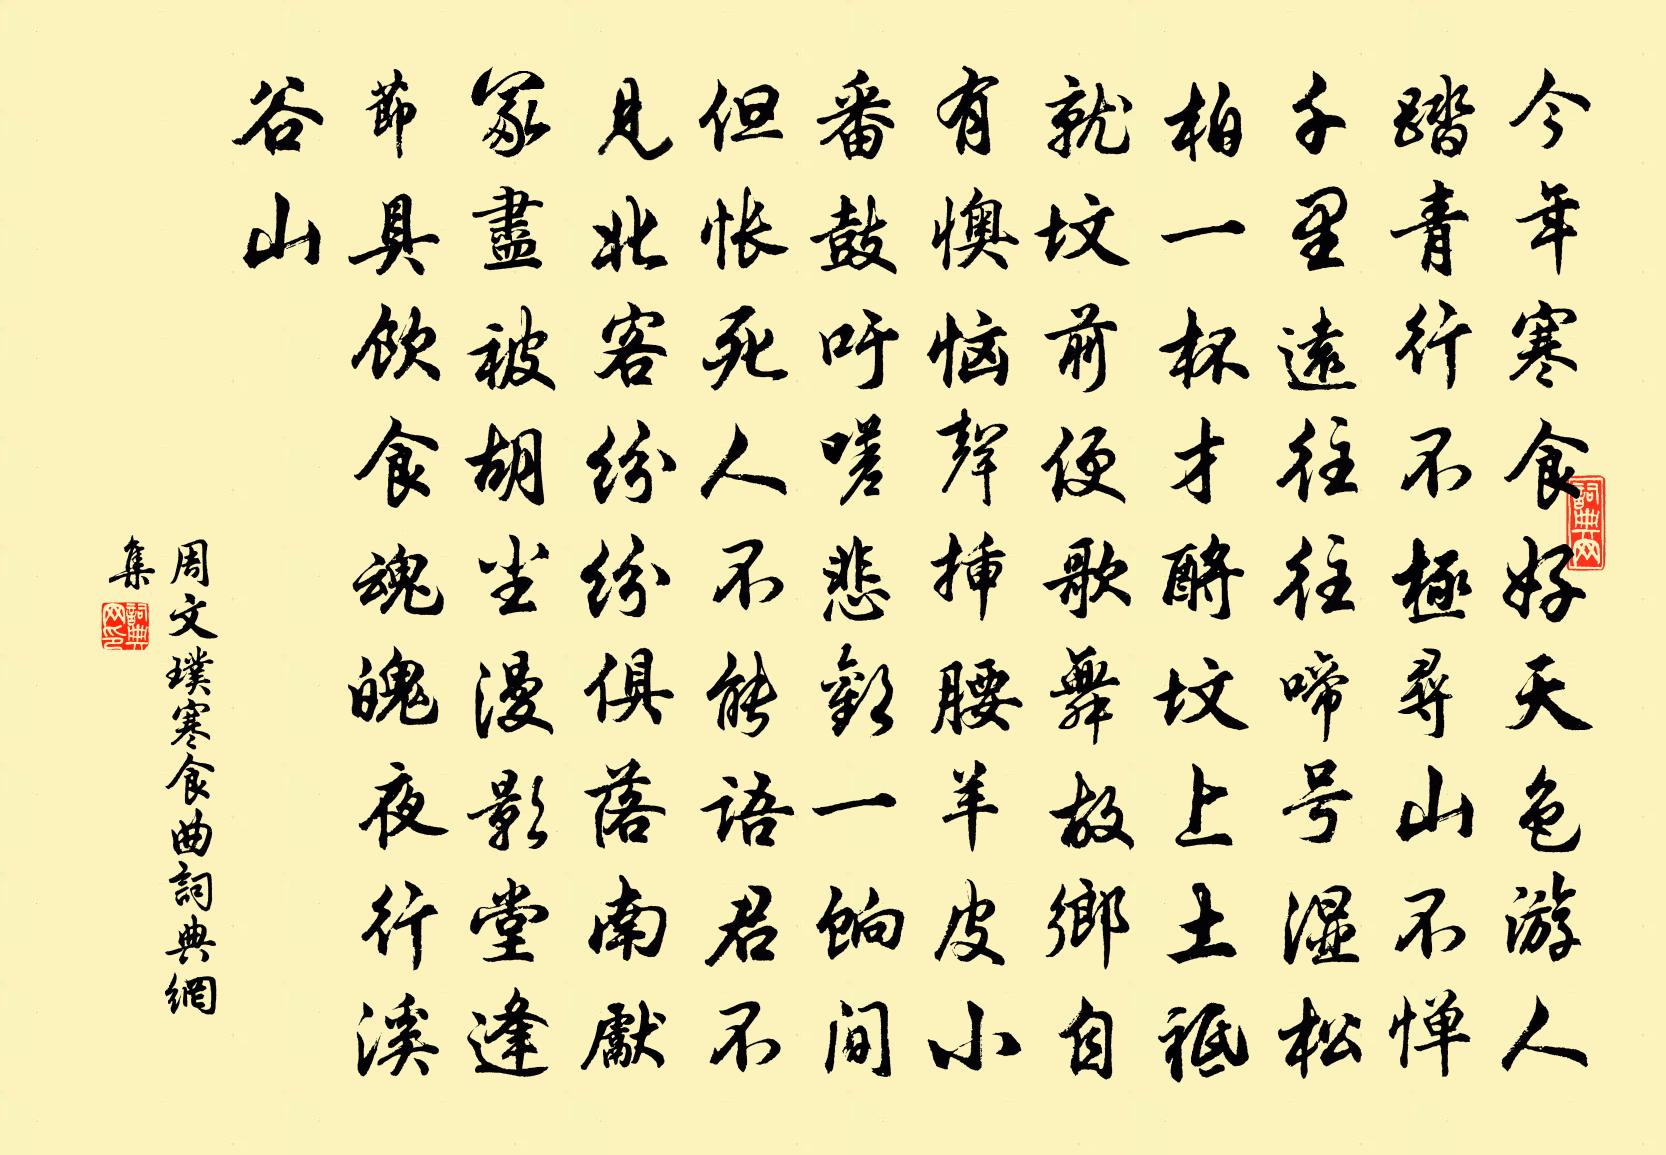 今年寒食好天色游人
踏青行不極尋山不惮
千里遠往往啼号湿松
柏一杯才酹坟上土祗
就坟前便歌舞故鄉自
有懊恼聲挿腰羊皮小
番鼓吁嗟悲歡一餉间
但怅死人不能語君不
見北客纷纷俱落南獻
冢盡被胡尘漫影堂逢
節具飲食魂魄夜行溪
谷山
周文璞寒食曲詞典網
集
詞典网
詞典网印